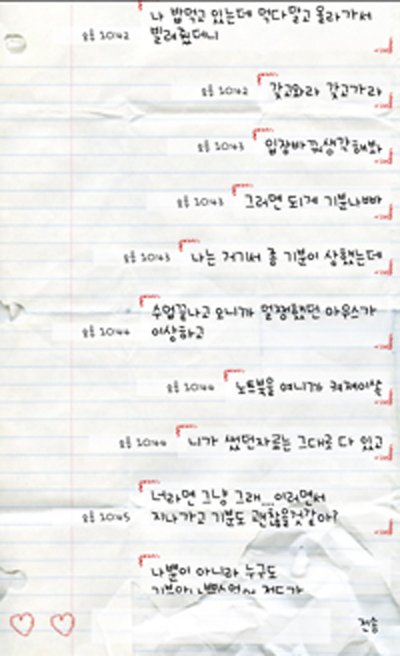 나 밥먹고 있는데 먹다말고 올라가서
빌려줬더니
오후 10:42
오후 10:42 갖고와라 갖고가라
오후 10:43 입장바꿔생각해봐
오후 10:43 그러면 되게 기분나빠
오후 10:43 나는 거기서 좀 기분이 상했는데
수업끝나고 오니까 멀쩡했던 마우스가
이상하고
오후 10:44
오후 10:44 노트북을 여니까 켜져이썽
오후 10:44 니가 썼던자료는 그대로 다 있고
너라면 그냥 그래....이러면서
지나가고 기분도 괜찮을것같아?
오후 10:45
나뿐이 아니라 누구도
전송